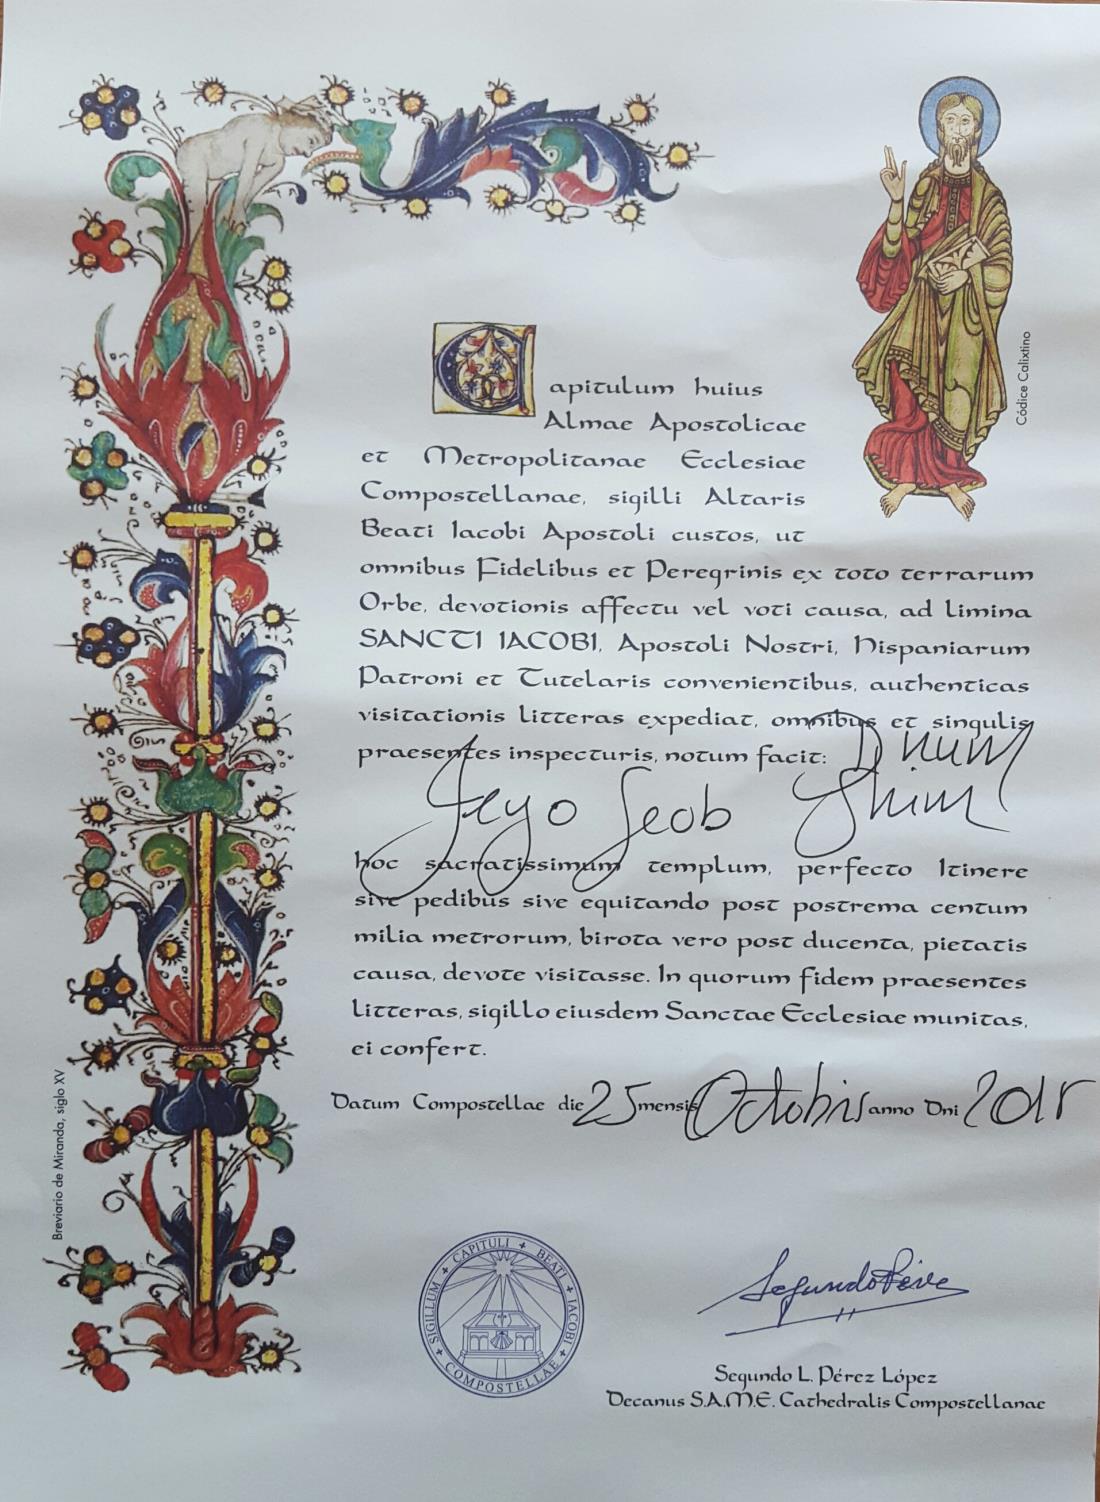 Capitulum huius
Almae Apostolicae
et Metropolitanae Ecclesiae
Compostellanae, sigilli Altaris
Beati Iacobi Apostoli custos, ut
omnibus Fidelibus et Peregrinis ex toto terrarum
Orbe, devotionis affectu vel voti causa, ad limina
SANCTI IACOBI, Apostoli Nostri, Hispaniarum
Patroni et Tutelaris convenientibus, authenticas
visitationis litteras expediat, omnibus et singulis
praesentes inspecturis, notum facit: Dnum
Jeyo Seob Shim
hoc sacratissimum templum, perfecto Itinere
sive pedibus sive equitando post postrema centum
milia metrorum, birota vero post ducenta, pietatis
causa, devote visitasse. In quorum fidem praesentes
litteras, sigillo eiusdem Sanctae Ecclesiae munitas,
ei confert.
Datum Compostellae die 25 mensis Octobris anno Dni
SIGILLUM + CAPITULI + BEATI + IACOBI + COMPOSTELLAE +
Segundo Pérez
Segundo L. Pérez López
Decanus S.A.M.E. Cathedralis Compostellanae
Códice Calixtino
Breviario de Miranda, siglo XV